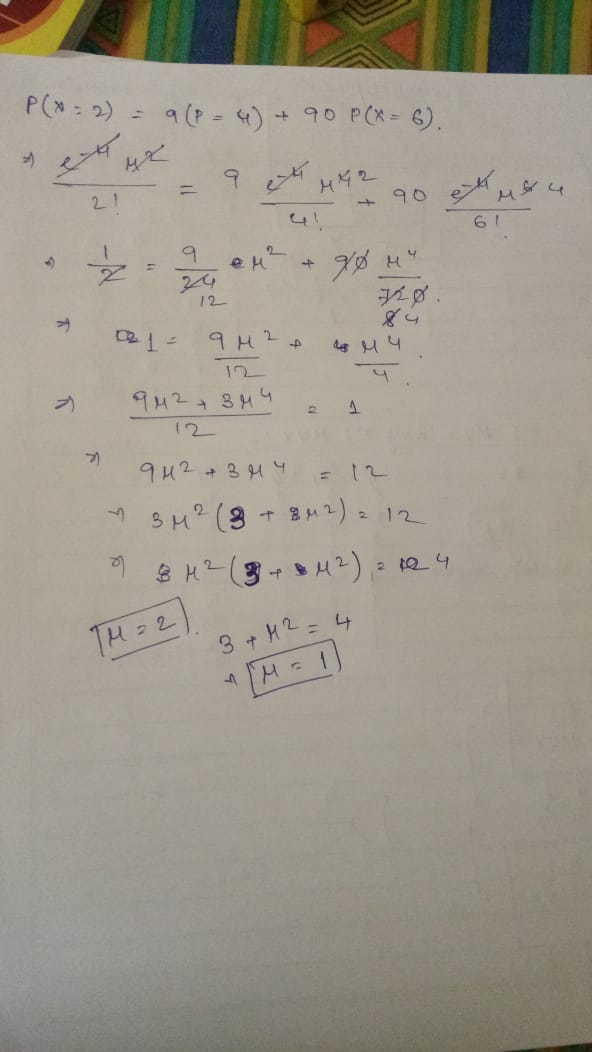 P(X = 2) = 9(P = 4) + 90 P(X = 6).
⇒ e^-μ μ^2 / 2! = 9 e^-μ μ^4 2 / 4! + 90 e^-μ μ^6 4 / 6!
⇒ 1/2 = 9/24 12 μ^2 + 90 μ^4 / 720. 8 4
⇒ 1 = 9μ^2/12 + μ^4/4.
⇒ 9μ^2 + 3μ^4 / 12 = 1
⇒ 9μ^2 + 3μ^4 = 12
⇒ 3μ^2(3 + μ^2) = 12
⇒ μ^2(3 + μ^2) = 4
μ = 2. 3 + μ^2 = 4
⇒ μ = 1